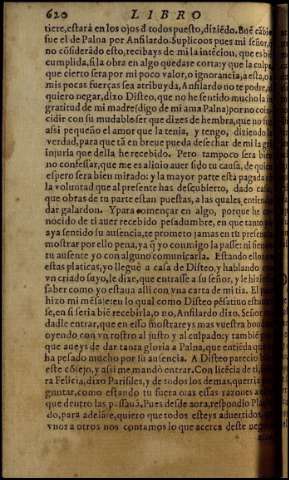 620 LIBRO
tiere, estará en los ojos d̃ todos puesto, diziẽdo. Buẽ
fue el de Palna por Anfilardo. Suplicoos pues mi señor, q̃
no cõsiderãdo esto, recibays de mi la intẽcion, que es biẽ
cumplida, si la obra en algo quedase corta: y que la culpa
que cierto sera por mi poco valor, o ignorancia, a esta, o a
mis pocas fuerças sea atribuyda, Anfilardo no te podre, ni
quiero negar, dizo Disteo, que no he sentido mucho la in
gratitud de mi madre (digo de mi ama Palna) por no
cidir con su mudable ser que dizes de hembra, que no fue
assi pequeño el amor que la tenia, y tengo, diziendo la
verdad, para que tã en breue pueda desechar de mi la
injuria que della he recebido. Pero tampoco sera bien
no confessar, que me es aliuio auer sido tu causa, de quien
espero sera bien mirado: y la mayor parte está pagada
la voluntad que al presente has descubierto, dado caso
que obras de tu parte estan puestas, a las quales, entiendo
dar galardon. Y para començar en algo, porque he co
nocido de ti auer recebido pesadumbre, en que tanto
aya sentido su ausencia, te prometo jamas en tu presencia
mostrar por ello pena, ya q̃ yo conmigo la passe: ni
tu ausente yo con alguno comunicarla. Estando ellos en
estas platicas, yo llegué a casa de Disteo, y hablando con
vn criado suyo, le dixe, que entrasse a su señor, y le hiziesse
saber como yo estaua alli con vna carte de mi tia. El
hizo mi mẽsaje: en lo qual como Disteo pẽsatiuo estuuiesse,
en si seria biẽ recebirla, o no, Anfilardo dixo. Señor
dadle entrar, que en esso mostrareys mas vuestra bondad,
oyendo con vn rostro al justo y al culpado: y tambiẽ por
que aueys de dar tanta gloria a Palna, que entiẽda que os
ha pesado mucho por su ausencia. A Disteo parecio bien
este cõsejo, y assi me mandó entrar. Con licẽcia de ti,
ra Felicia, dixo Parisiles, y de todos los demas, querria
guntar, como estando tu fuera oias essas razones a
que dentro las passauã. Pues desde aora, respondio
do, para adelãte, quiero que todos esteys aduertidos,
vnos a otros nos contamos lo que acerca deste